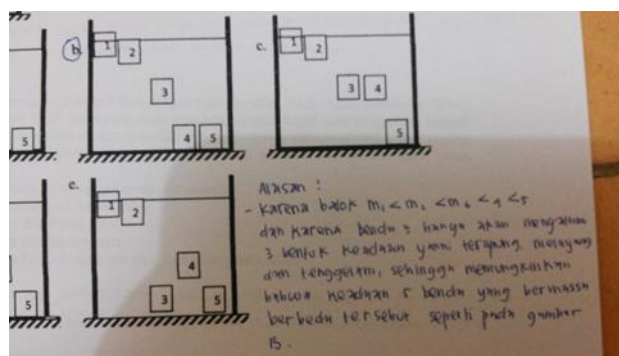 5
b.
1
2
3
4
5
c.
1
2
3
4
5
5
e.
1
2
4
3
5
Alasan :
- Karena balok m₁ < m₂ < m₄ < 4 < 5
dan karena benda 5 hanya akan mengalami
3 bentuk keadaan yakni terapung, melayang
dan tenggelam, sehingga memungkinkan
bahwa keadaan 5 benda yang bermassa
berbeda tersebut seperti pada gambar
B.